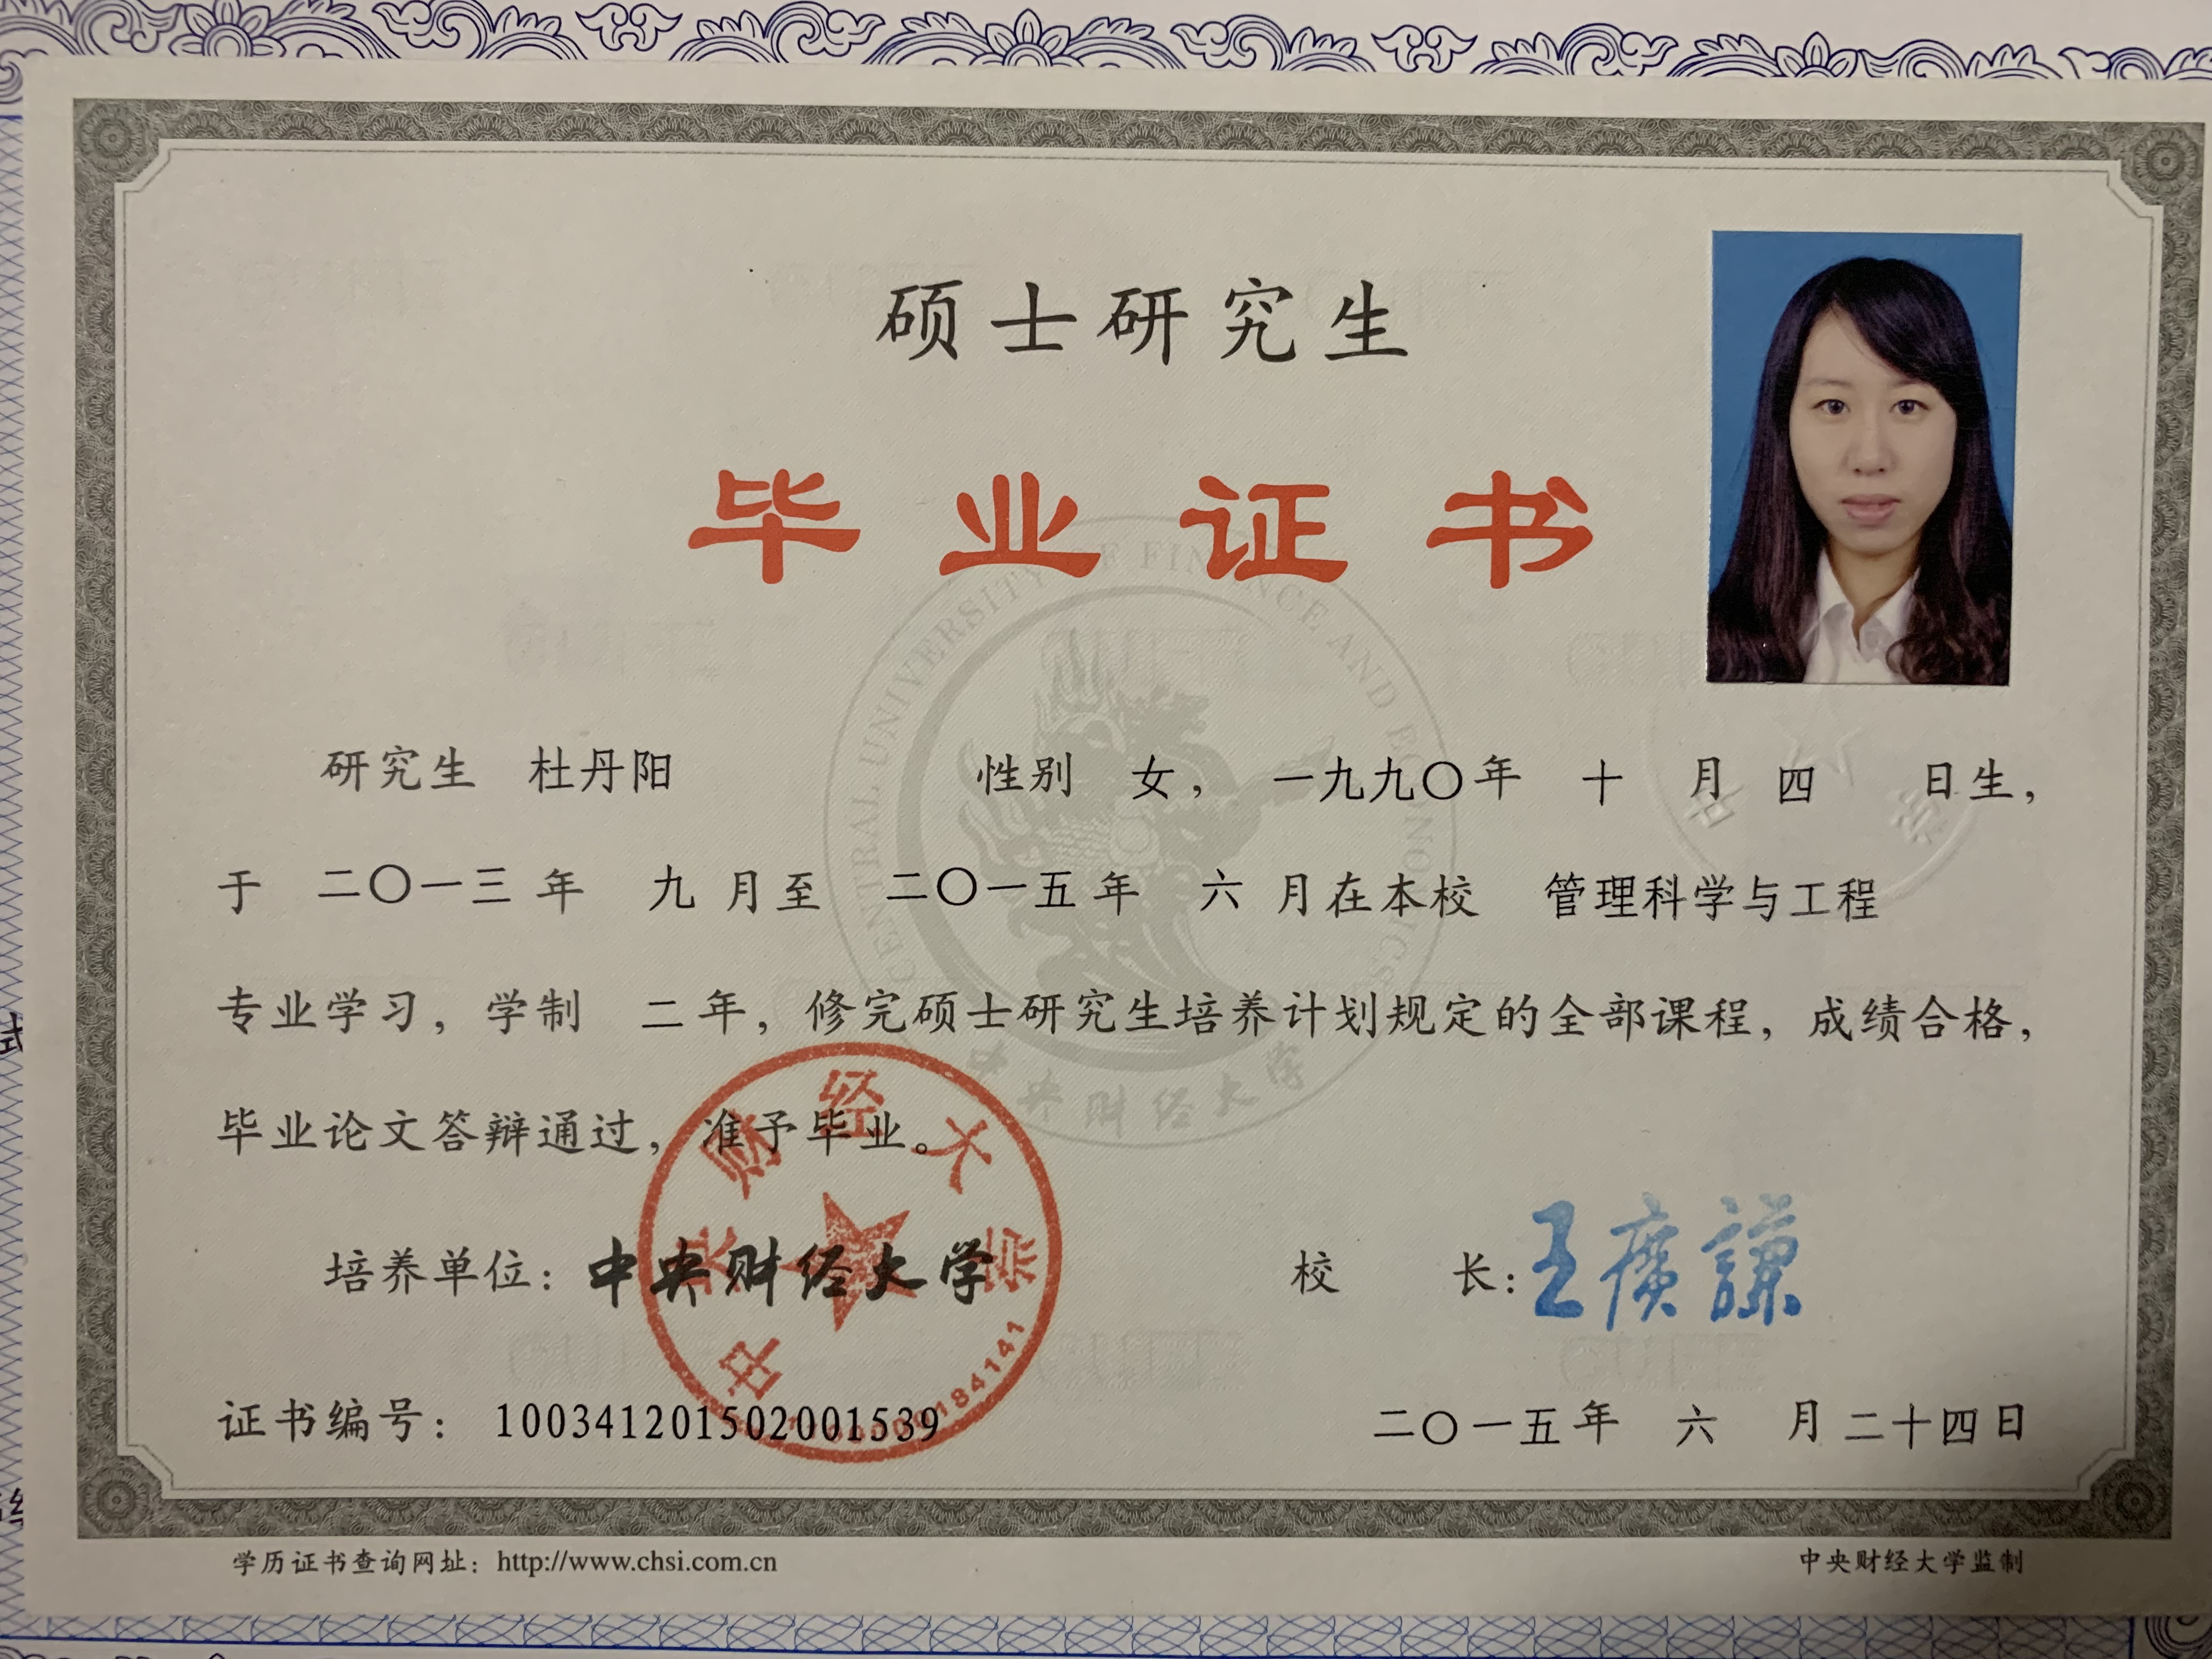 硕士研究生
毕业证书
CENTRAL UNIVERSITY OF FINANCE AND ECONOMICS
中央财经大学
研究生 杜丹阳 性别 女， 一九九〇年 十 月 四 日生，
于 二〇一三 年 九 月至 二〇一五 年 六 月在本校 管理科学与工程
专业学习，学制 二 年，修完硕士研究生培养计划规定的全部课程，成绩合格，
毕业论文答辩通过，准予毕业。
中央财经大学
培养单位：中央财经大学 校 长：王廣謙
证书编号： 100341201502001539 二〇一五 年 六 月 二十四日
学历证书查询网址：http://www.chsi.com.cn 中央财经大学监制